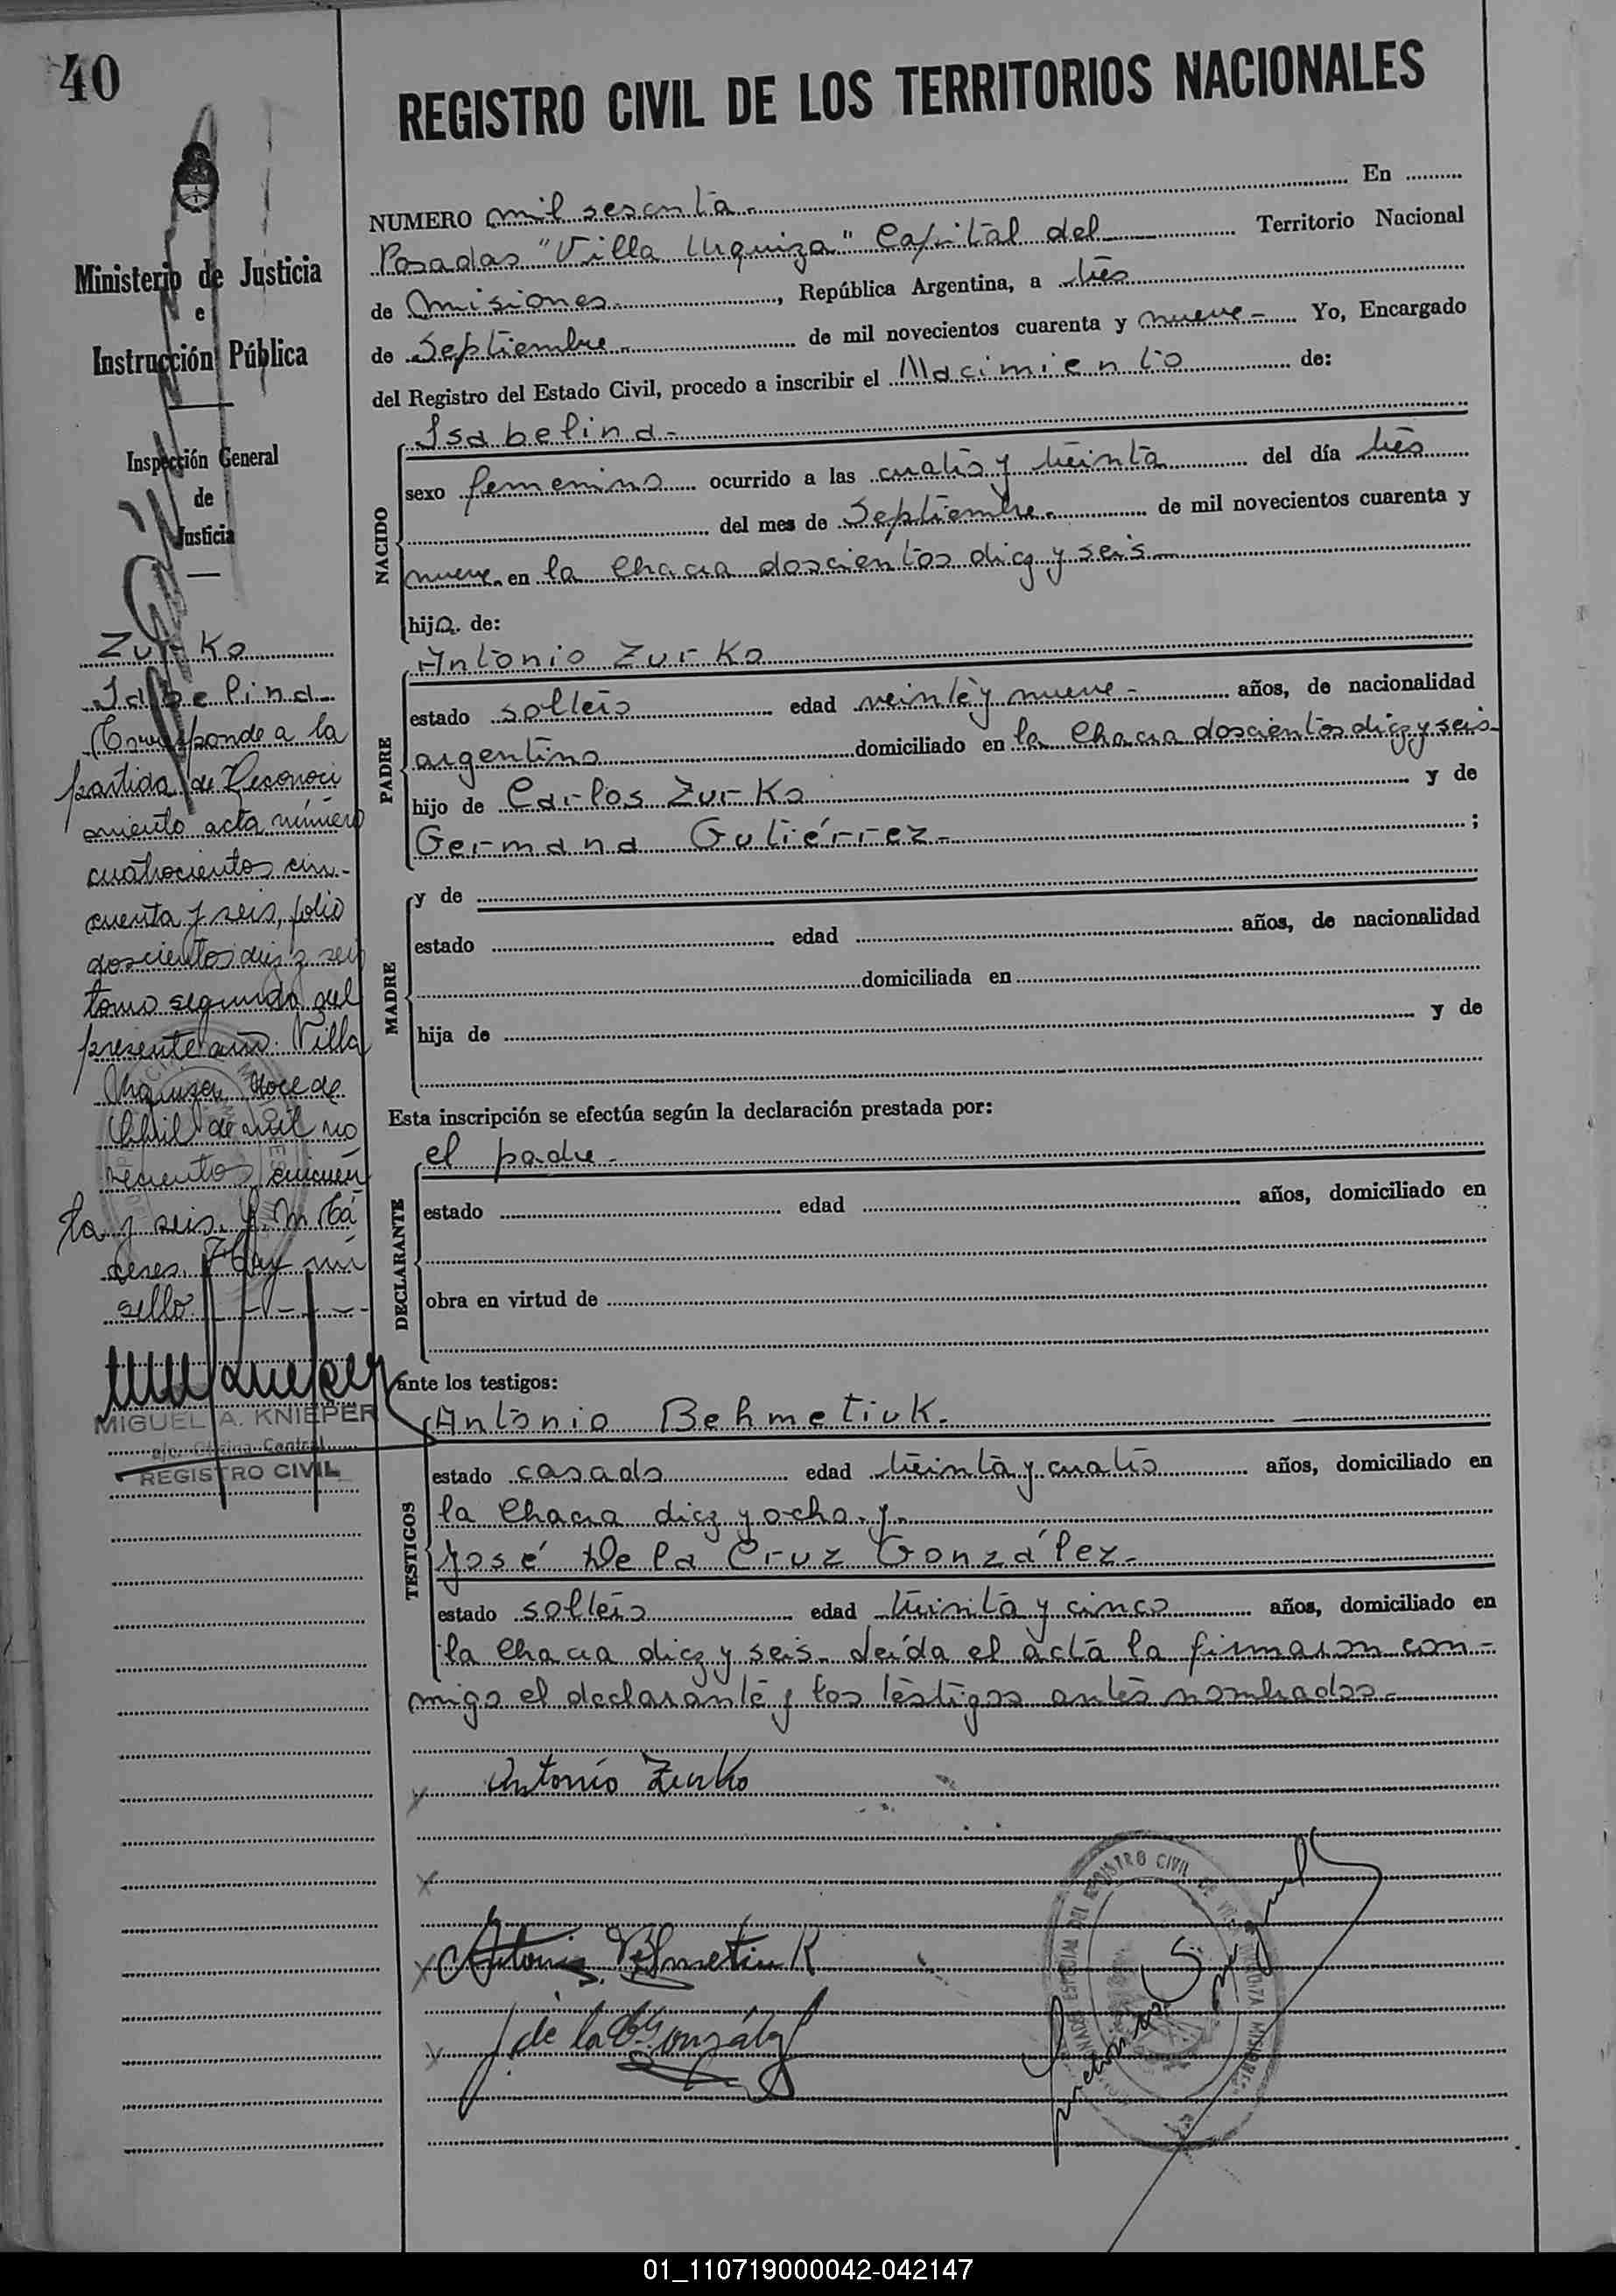 40
REGISTRO CIVIL DE LOS TERRITORIOS NACIONALES
Ministerio de Justicia
e
Instrucción Pública
Inspección General
de
Justicia
NUMERO mil sesenta.- En
Posadas "Villa Urquiza" Capital del Territorio Nacional
de Misiones.-, República Argentina, a tres
de Septiembre.- de mil novecientos cuarenta y nueve- Yo, Encargado
del Registro del Estado Civil, procedo a inscribir el Nacimiento de:
NACIDO
Isabelina-
sexo femenino ocurrido a las cuatro y treinta del día tres
del mes de Septiembre.- de mil novecientos cuarenta y
nueve. en la Chacra doscientos diez y seis
hija. de:
PADRE
Antonio Zurko
estado soltero edad veinte y nueve- años, de nacionalidad
argentino domiciliado en la Chacra doscientos diez y seis-
hijo de Carlos Zurko y de
Germana Gutiérrez-;
MADRE
y de
estado edad años, de nacionalidad
domiciliada en
hija de y de
Esta inscripción se efectúa según la declaración prestada por:
DECLARANTE
el padre-
estado edad años, domiciliado en
obra en virtud de
ante los testigos:
TESTIGOS
Antonio Behmetiuk.
estado casado edad treinta y cuatro años, domiciliado en
la Chacra diez y ocho. y.
José De la Cruz González-
estado soltero edad treinta y cinco años, domiciliado en
la Chacra diez y seis. Leída el acta la firmaron con-
migo el declarante y los testigos antes nombrados-
Antonio Zurko
Antonio Behmetiuk
J. de la González
REGISTRO CIVIL DE
Zurko
Isabelina
Corresponde a la
partida de Reconoci
miento acta número
cuatrocientos cin-
cuenta y seis, folio
doscientos diez y seis
tomo segundo del
presente año. Villa
Urquiza doce de
Abril de mil no
vecientos cincuen
ta y seis.
Hay un
sello.
MIGUEL A. KNIEPER
a/c. Oficina Central
REGISTRO CIVIL
01_110719000042-042147